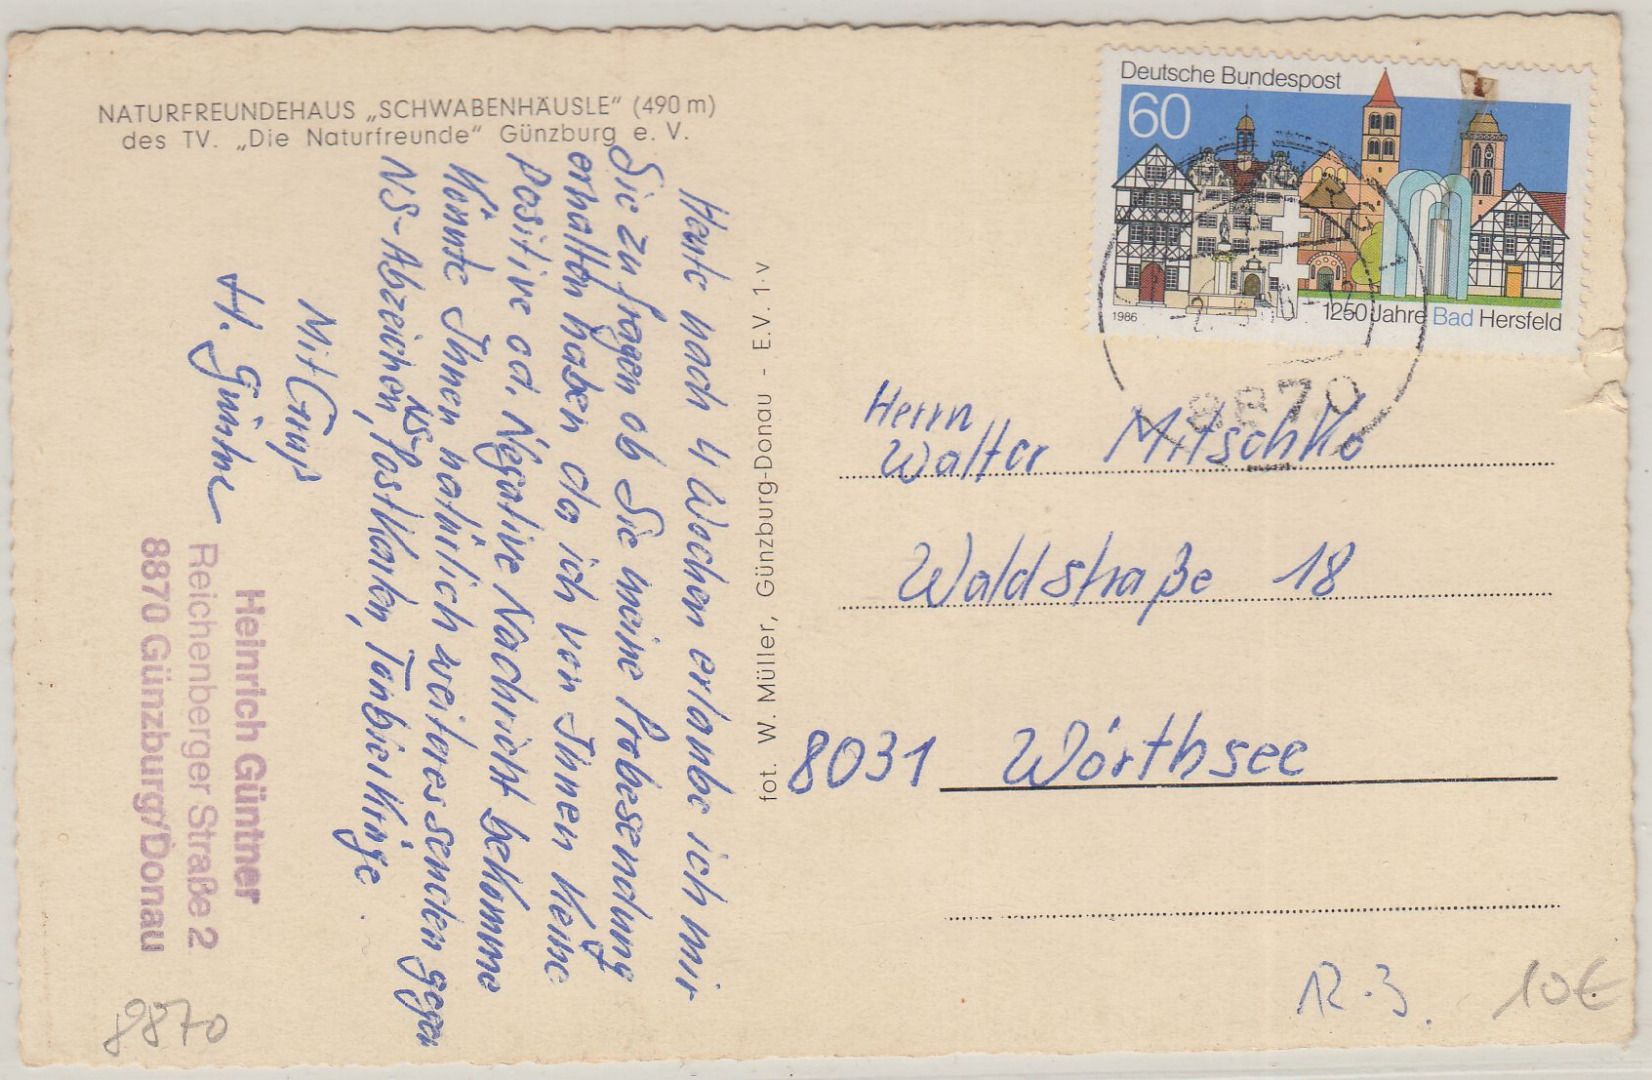 NATURFREUNDEHAUS „SCHWABENHÄUSLE" (490 m)
des TV. „Die Naturfreunde" Günzburg e. V.
Heute nach 4 Wochen erlaube ich mir
Sie zu fragen ob Sie meine Probesendung
erhalten haben da ich von Ihnen keine
Positive od. Negative Nachricht bekomme
Könnte Ihnen natürlich weiteres senden gegen
NS-Abzeichen, NS-Postkarten, Türbierkrüge.
Mit Gruß
H. Güntner
Heinrich Güntner
Reichenberger Straße 2
8870 Günzburg/Donau
8870
fot. W. Müller, Günzburg-Donau - E.V. 1·v
Deutsche Bundespost
60
1986
1250 Jahre Bad Hersfeld
8870
Herrn
Walter Mitschke
Waldstraße 18
8031 Wörthsee
R.3.
10€